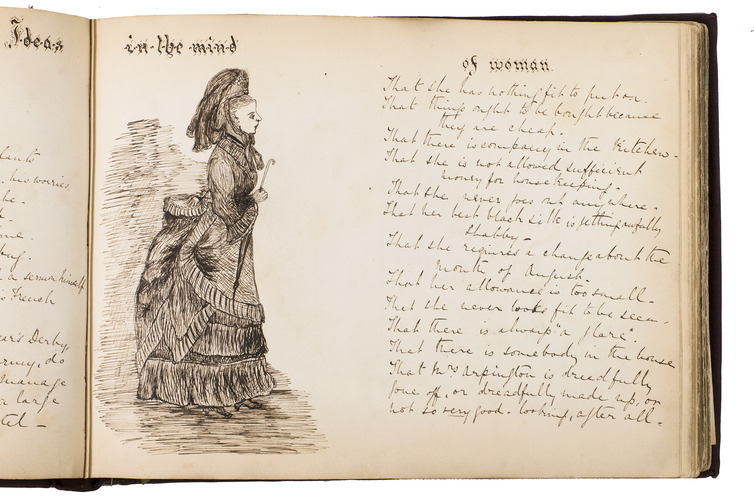 Ideas
his worries
a sermon himself
French
Derby,
do
manage
a large
in the mind
of woman
That she has nothing fit to put on.
That things ought to be bought because
they are cheap.
That there is company in the Kitchen -
That she is not allowed sufficient
money for housekeeping.
That she never goes out anywhere.
That her best black silk is getting awfully
shabby -
That she requires a change about the
month of August.
That her allowance is too small -
That she never looks fit to be seen -
That there is always "a glare".
That there is somebody in the house
That Mrs Arpington is dreadfully
gone off, or dreadfully made up, or
not so very good-looking, after all -